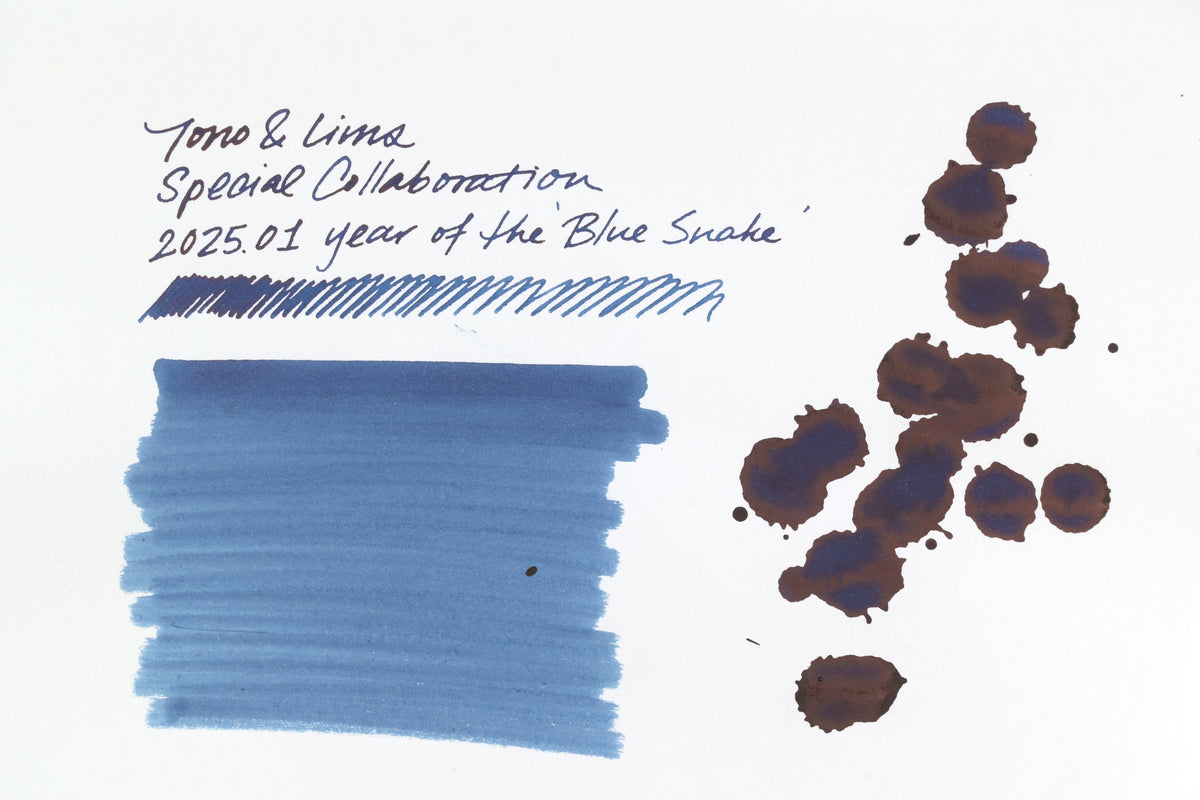 Tono & Lims
Special Collaboration
2025.01 year of the 'Blue Snake'